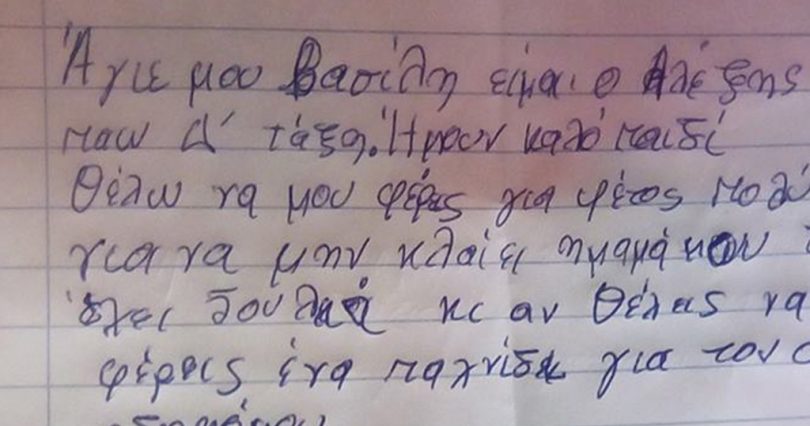 Άγιε μου Βασίλη είμαι ο Αλέξης
παω Δ' τάξη. Ήμουν καλό παιδί
Θέλω να μου φέρεις για φέτος πολύ
για να μην κλαίει ημαμά μου
έχει δουλειά κι αν θέλεις να
φέρεις ένα παχνίδι για τον